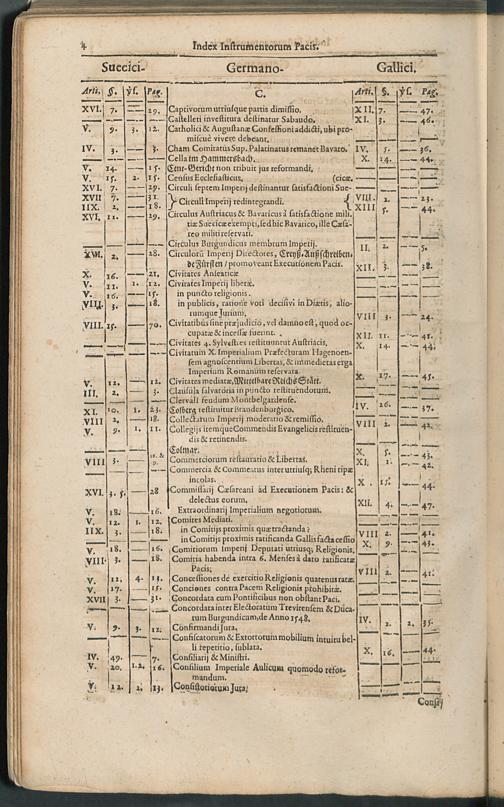 4 Index Instrumentorum Pacis.
Suecici- Germano- Gallici.
Arti. §. ỳſ. Pag. C. Arti. §. ỳſ. Pag.
XVI. 7. — 29. Captivorum utriusque partis dimissio. XII. 7. — 47.
— — — — Castelleti investitura destinatur Sabaudo. XI. 3. — 46.
V. 9. 3. 12. Catholici & Augustanæ Confessioni addicti, ubi promiscuè vivere debeant.
IV. 3. — 3. Cham Comitatus Sup. Palatinatus remanet Bavaro. IV. 5. — 36.
— — — — Cella im Hammersbach. X. 14. — 44.
V. 14. — 15. Cent-Gericht non tribuit jus reformandi.
V. 15. 2. 15. Census Ecclesiasticus. (cicæ.
XVI. 7. — 29. Circuli septem Imperij destinantur satisfactioni Sue-
XVII 7. — 31. } Circuli Imperij redintegrandi. { VIII. 2. — 23.
IIX. 2. — 18. XIII 5. — 44.
XVI. 11. — 29. Circulus Austriacus & Bavaricus à satisfactione militiæ Suecicæ exempti, sed hic Bavarico, ille Cæsareo militi reservati.
— — — — Circulus Burgundicus membrum Imperij. II. 2. — 5.
XVI. 2. — 28. Circulorũ Imperij Directores, Creyß-Außschreibende Fürsten / promoveant Executionem Pacis. XII. 3. — 38.
X. 16. — 21. Civitates Anseaticæ
V. 11. 1. 12. Civitates Imperij liberæ.
V. 16. — 15. in puncto religionis.
VIII. 3. — 18. in publicis, ratione voti decisivi in Diætis, aliorumque Jurium. VIII 3. — 24.
VIII. 15. — 70. Civitatibus sine præjudicio, vel damno est, quod occupatæ & incessæ fuerint. XII. 11. — 41.
— — — — Civitates 4. Sylvestres restituuntur Austriacis. X. 14. — 44.
— — — — Civitatum X. Imperialium Præfecturam Hagenoensem agnoscentium Libertas, & immedietas erga Imperium Romanum reservata. X. 17. — 45.
V. 12. — 12. Civitates mediatæ, Mittelbare Reichs Stätt.
III. 2. — 3. Clausula salvatoria in puncto restituendorum.
— — — — Clervall feudum Montbelgardense.
XI. 10. 1. 23. Colberg restituitur Brandenburgico. IV. 26. — 37.
VIII 2. — 18. Collectarum Imperij moderatio & remissio. VIII 2. — 42.
V. 9. 1. 11. Collegijs itemque Commendis Evangelicis restituendis & retinendis.
— — — — Colmar. X. 5. — 43.
VIII 3. — Commerciorum restauratio & Libertas. XI. 1. — 42.
— — — — Commercia & Commeatus inter utriusq; Rheni ripæ incolas. X. 15. — 44.
XVI. 3. 5. 28 Commissarij Cæsareani ad Executionem Pacis: & delectus eorum. XII. 4. — 47.
V. 18. — 16. Extraordinarij Imperialium negotiorum.
V. 12. 1. 12. Comites Mediati.
IIX. 3. — 18. in Comitijs proximis quæ tractanda? VIII 2. — 41.
— — — — in Comitijs proximis ratificanda Gallis facta cessio X. 9. — 43.
V. 18. — 16. Comitiorum Imperij Deputati utriusq; Religionis.
VIII. 3. — 18. Comitia habenda intra 6. Menses à dato ratificatæ Pacis; VIII 2. — 41.
V. 12. 4. 13. Concessiones de exercitio Religionis quatenus ratæ.
V. 17. — 15. Conciones contra Pacem Religionis prohibitæ.
XVII 3. — 31. Concordata cum Pontificibus non obstant Paci.
— — — — Concordata inter Electoratum Trevirensem & Ducatum Burgundicum, de Anno 1548. IV. 2. 2. 35.
V. 9. 3. 12. Confirmandi Jura.
— — — — Confiscatorum & Extortorum mobilium intuitu belli repetitio, sublata. X. 16. — 44.
IV. 49. — 7. Consiliarij & Ministri.
V. 20. 1.2. 16. Consilium Imperiale Aulicum quomodo reformandum.
V. 12. 2. 13. Consistoriorum Jura;
Consti